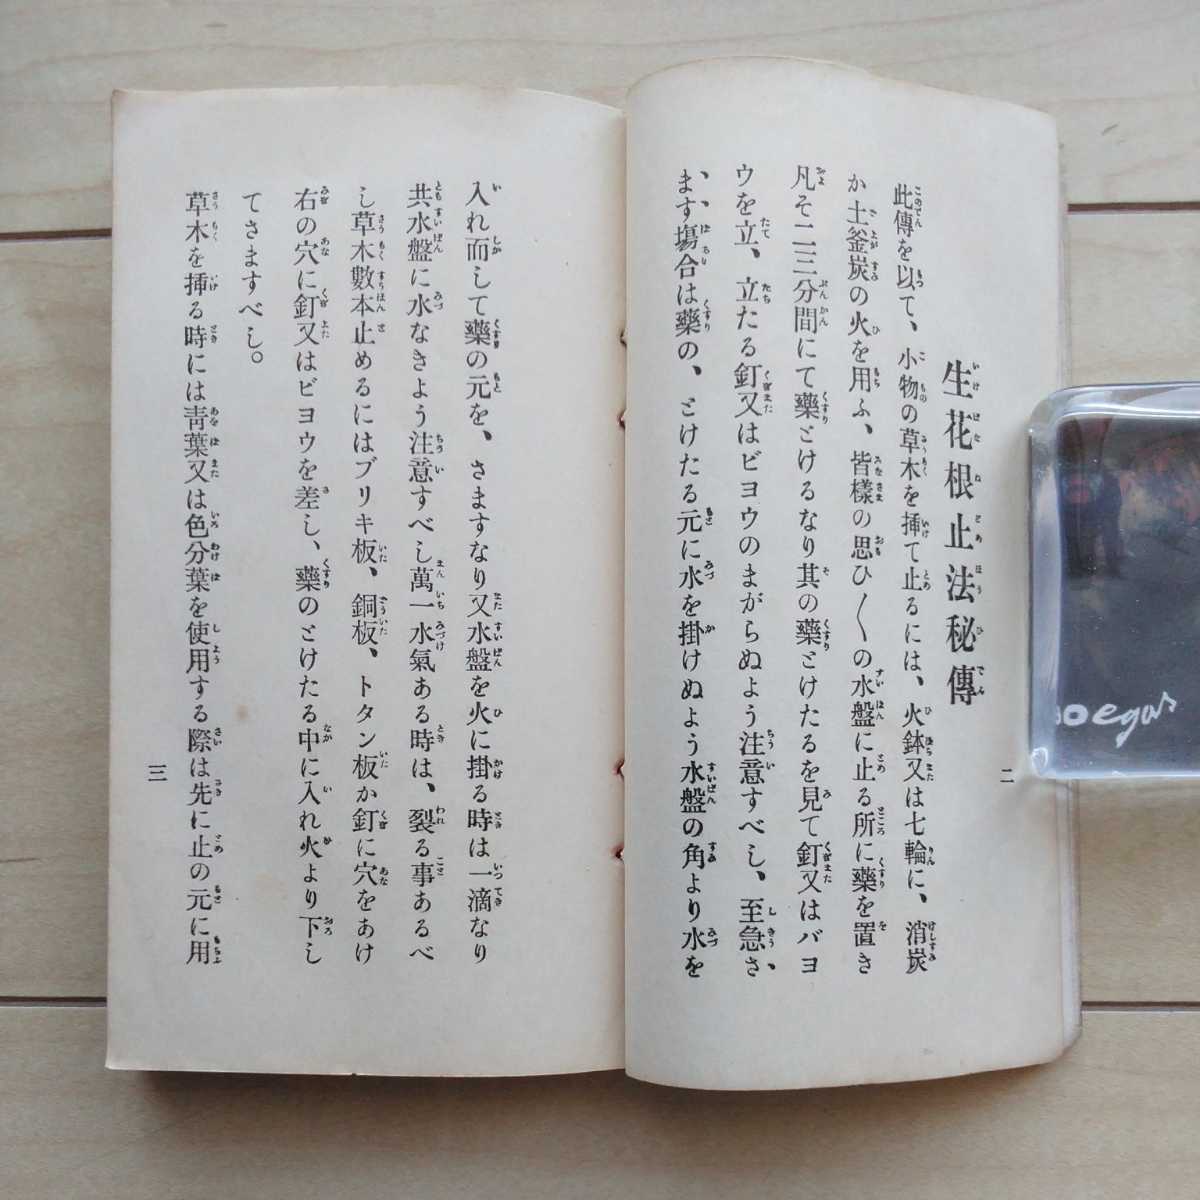 生花根止法秘傳
此傳を以て、小物の草木を挿て止るには、火鉢又は七輪に、消炭
か土釜炭の火を用ふ、皆樣の思ひ〱の水盤に止る所に藥を置き
凡そ二三分間にて藥とけるなり其の藥とけたるを見て釘又はバヨ
ウを立、立たる釘又はビヨウのまがらぬよう注意すべし、至急さ、
ま、す塲合は藥の、とけたる元に水を掛けぬよう水盤の角より水を
二
入れ而して藥の元を、さますなり又水盤を火に掛る時は一滴なり
共水盤に水なきよう注意すべし萬一水氣ある時は、裂る事あるべ
し草木數本止めるにはブリキ板、銅板、トタン板か釘に穴をあけ
右の穴に釘又はビヨウを差し、藥のとけたる中に入れ火より下し
てさますべし。
草木を挿る時には靑葉又は色分葉を使用する際は先に止の元に用
三
egar